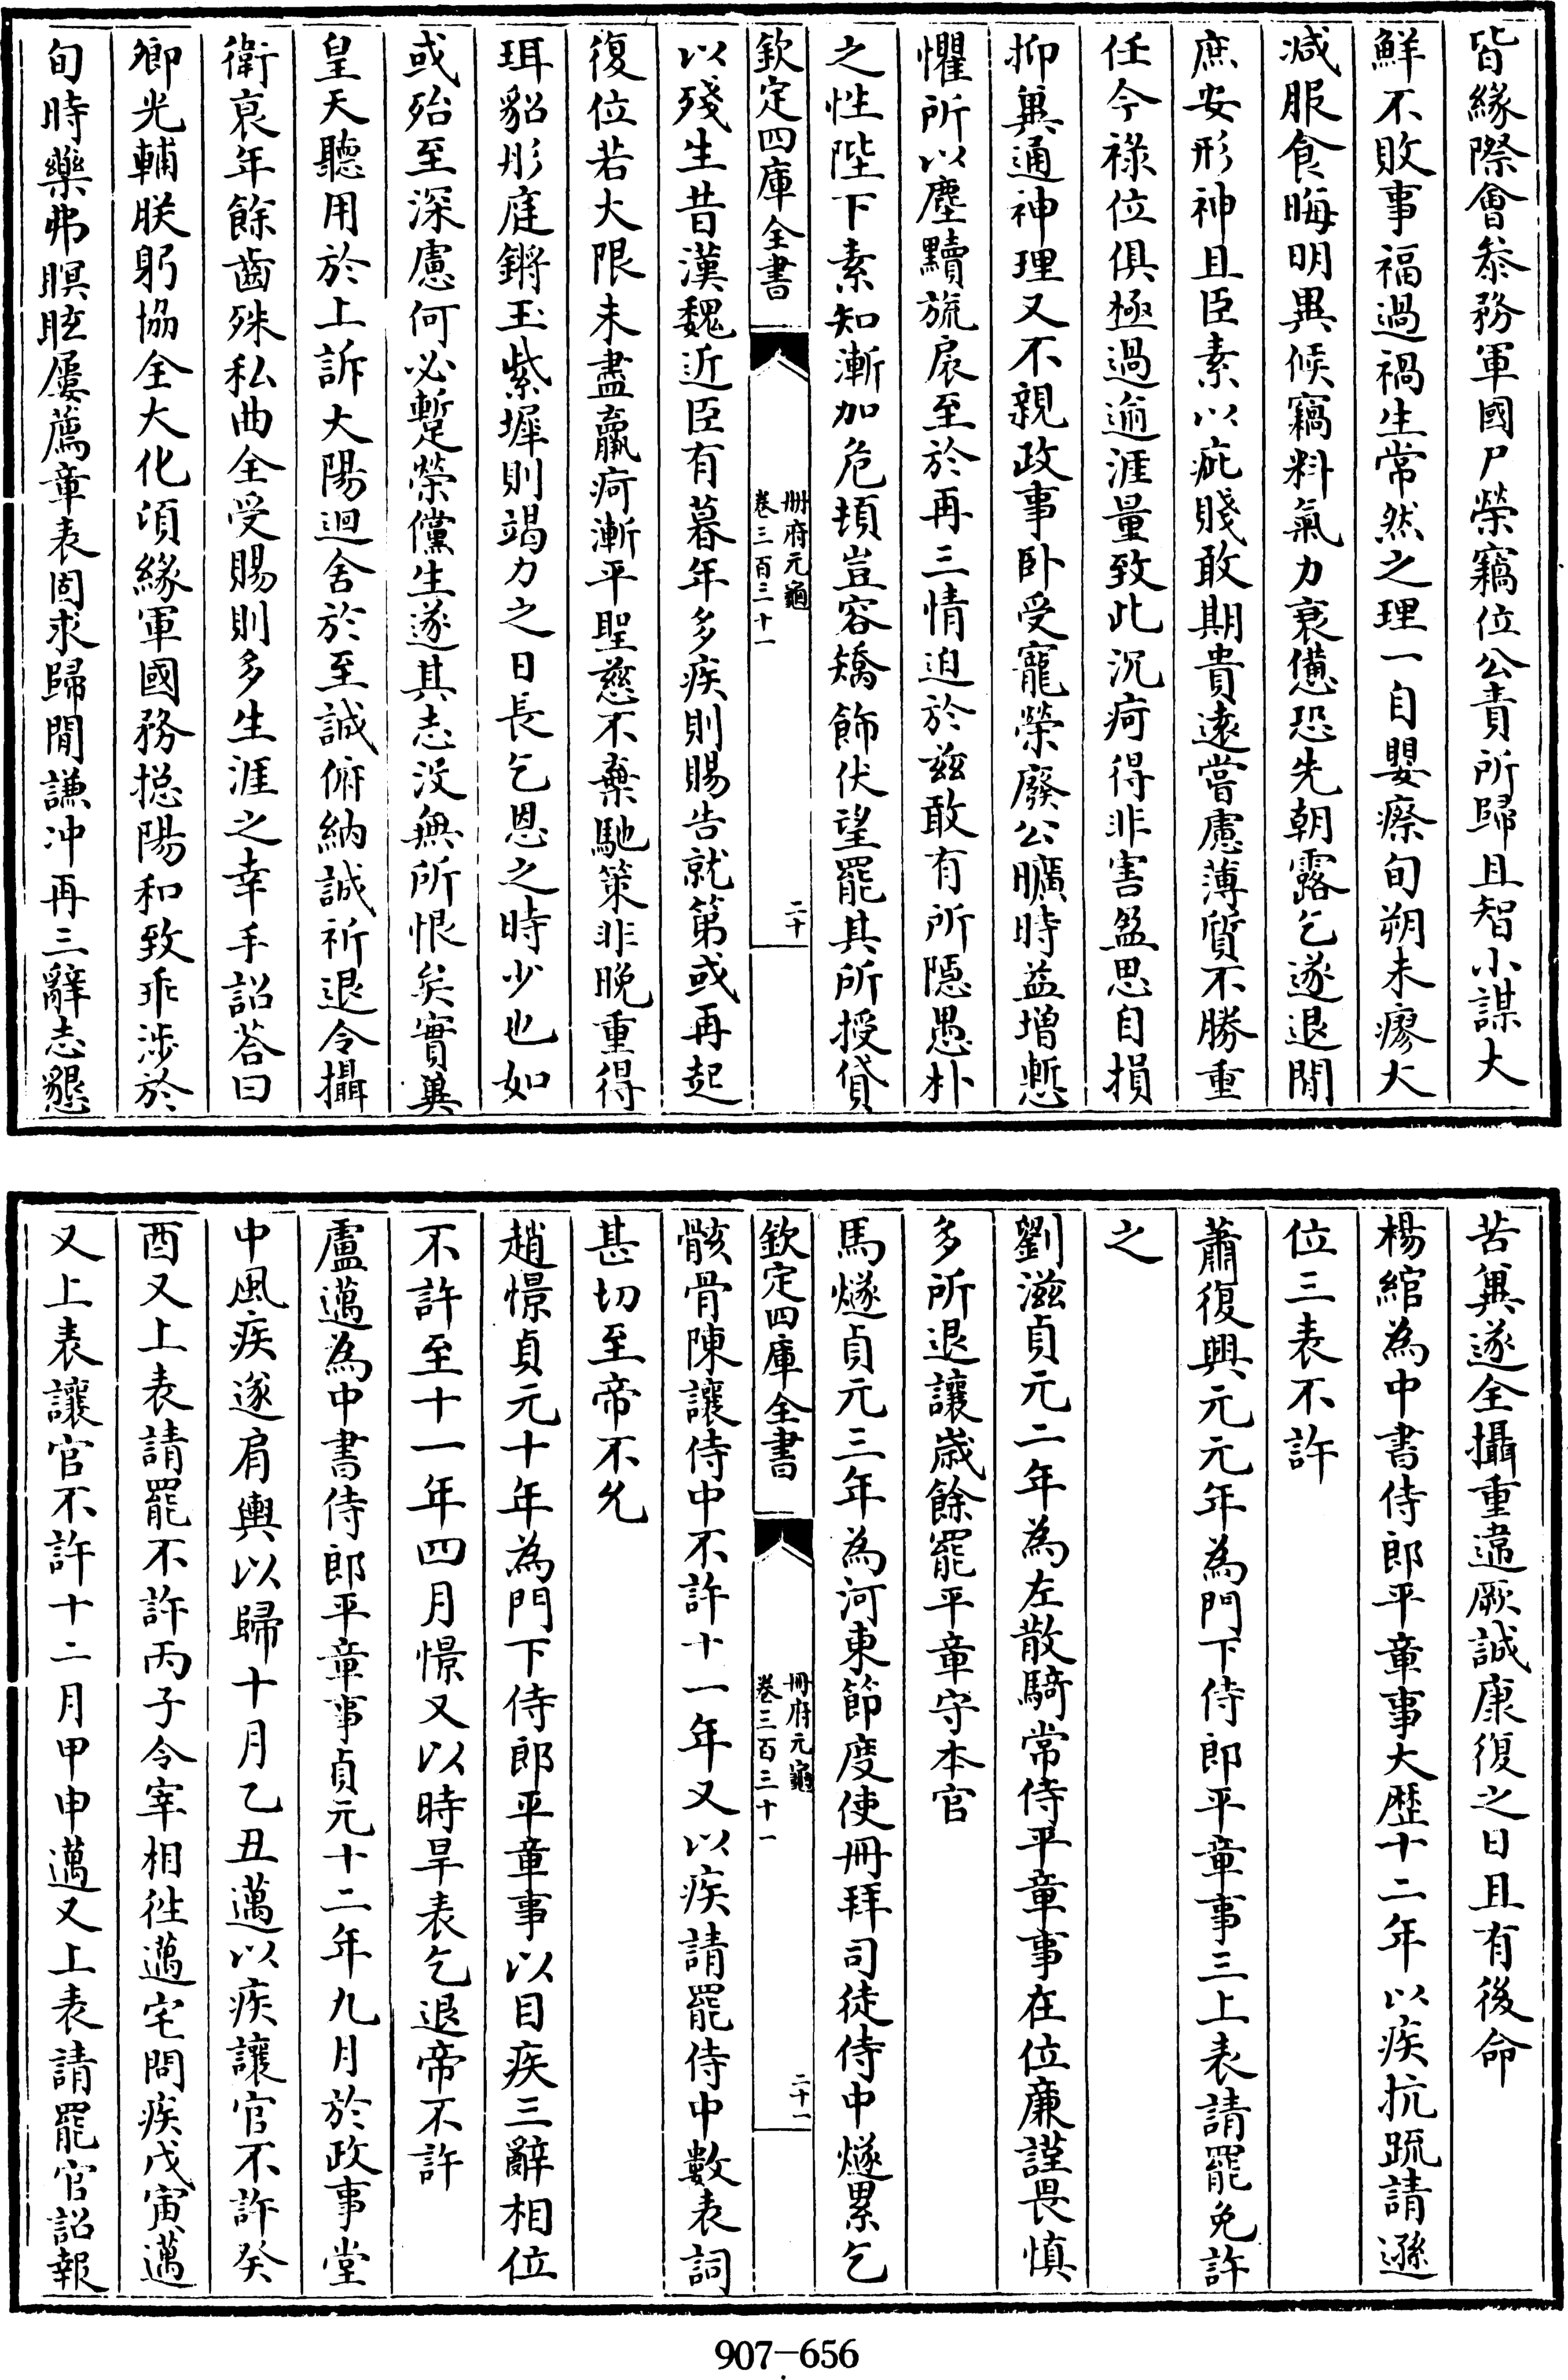 皆緣際會叅務軍國尸榮竊位公責所歸且智小謀大
鮮不敗事福過禍生常然之理一自嬰瘵旬朔未瘳大
減服食晦明異候竊料氣力衰憊恐先朝露乞遂退閒
庶安形神且臣素以疵賤敢期貴遠嘗慮薄質不勝重
任今祿位俱極過逾涯量致此沉疴得非害盈思自損
抑兾通神理又不親政事卧受寵榮廢公曠時益增慙
懼所以塵黷旒扆至於再三情迫於兹敢有所隱愚朴
之性陛下素知漸加危頓豈容矯飾伏望罷其所授貸
欽定四庫全書
冊府元龜
卷三百三十一
二十
以殘生昔漢魏近臣有暮年多疾則賜告就第或再起
復位若大限未盡羸疴漸平聖慈不棄馳策非晚重得
珥貂彤庭鏘玉紫墀則竭力之日長乞恩之時少也如
或殆至深慮何必蹔榮儻生遂其志沒無所恨矣實兾
皇天聽用於上訴大陽迴舍於至誠俯納誠祈退令攝
衛哀年餘齒殊私曲全受賜則多生涯之幸手詔荅曰
卿光輔朕躬恊全大化湏緣軍國務揔陽和致乖涉於
旬時藥弗瞑眩屢薦章表固求歸閒謙冲再三辭志懇
苦兾遂全攝重違厥誠康復之日且有後命
楊綰為中書侍郎平章事大歷十二年以疾抗疏請遜
位三表不許
蕭復興元元年為門下侍郎平章事三上表請罷免許
之
劉滋貞元二年為左散騎常侍平章事在位廉謹畏慎
多所退讓歲餘罷平章守本官
馬燧貞元三年為河東節度使冊拜司徒侍中燧累乞
欽定四庫全書
冊府元龜
卷三百三十一
二十一
骸骨陳讓侍中不許十一年又以疾請罷侍中數表詞
甚切至帝不允
趙憬貞元十年為門下侍郎平章事以目疾三辭相位
不許至十一年四月憬又以時旱表乞退帝不許
盧邁為中書侍郎平章事貞元十二年九月於政事堂
中風疾遂肩輿以歸十月乙丑邁以疾讓官不許癸
酉又上表請罷不許丙子令宰相徃邁宅問疾戊寅邁
又上表讓官不許十二月甲申邁又上表請罷官詔報
907-656